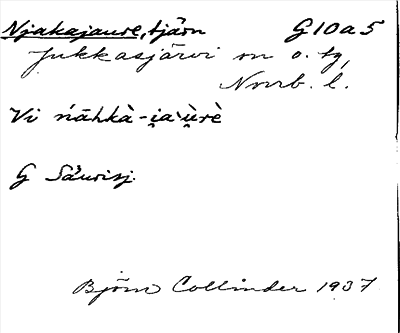 Njakajaure, tjärn G10a5
Jukkasjärvi sn o. tg,
Norrb. l.
Vi ńāhkà-i̯a`ù̯rè
G Säurisj.
Björn Collinder 1937